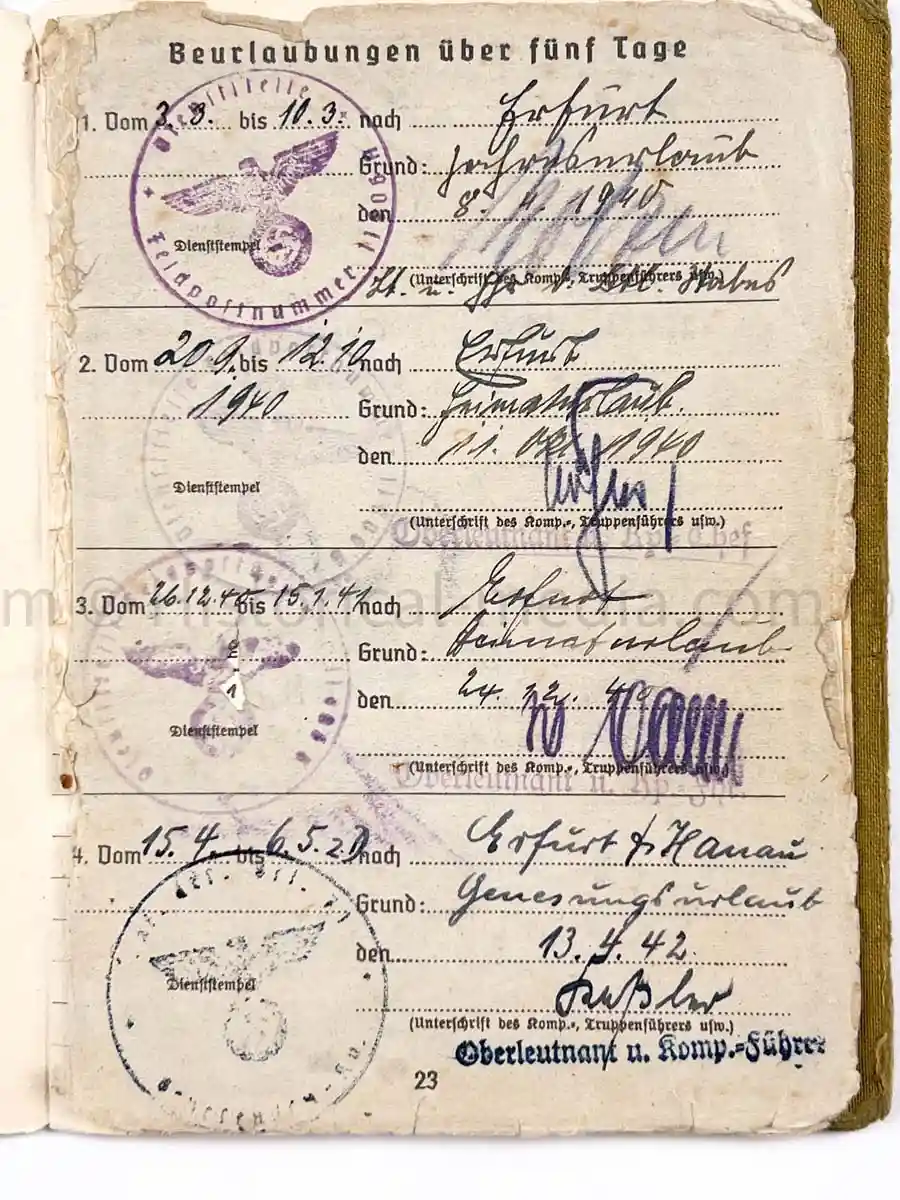 Beurlaubungen über fünf Tage
1. Vom 3. 3. bis 10.3. nach Erfurt
Grund: Jahresurlaub
den 8. 4. 1940
Dienststempel
Dienststelle Feldpostnummer
(Unterschrift des Komp.-, Truppenführers usw.)
Lt. u. d. Stabes
2. Vom 20 9. bis 12.10 nach Erfurt
1940 Grund: Heimaturlaub.
den 11. Okt. 1940
Dienststempel
(Unterschrift des Komp.-, Truppenführers usw.)
Oberleutnant u. Kp.-Chef
3. Vom 26.12.40 bis 15.1.41 nach Erfurt
Grund: Heimaturlaub
den 24. 12. 40
Dienststempel
(Unterschrift des Komp.-, Truppenführers usw.)
Oberleutnant u. Kp.-
4. Vom 15.4. bis 6.5. nach Erfurt + Hanau
Grund: Genesungsurlaub
den 13.4.42
Dienststempel
Keßler
(Unterschrift des Komp.-, Truppenführers usw.)
Oberleutnant u. Komp.-Führer
23